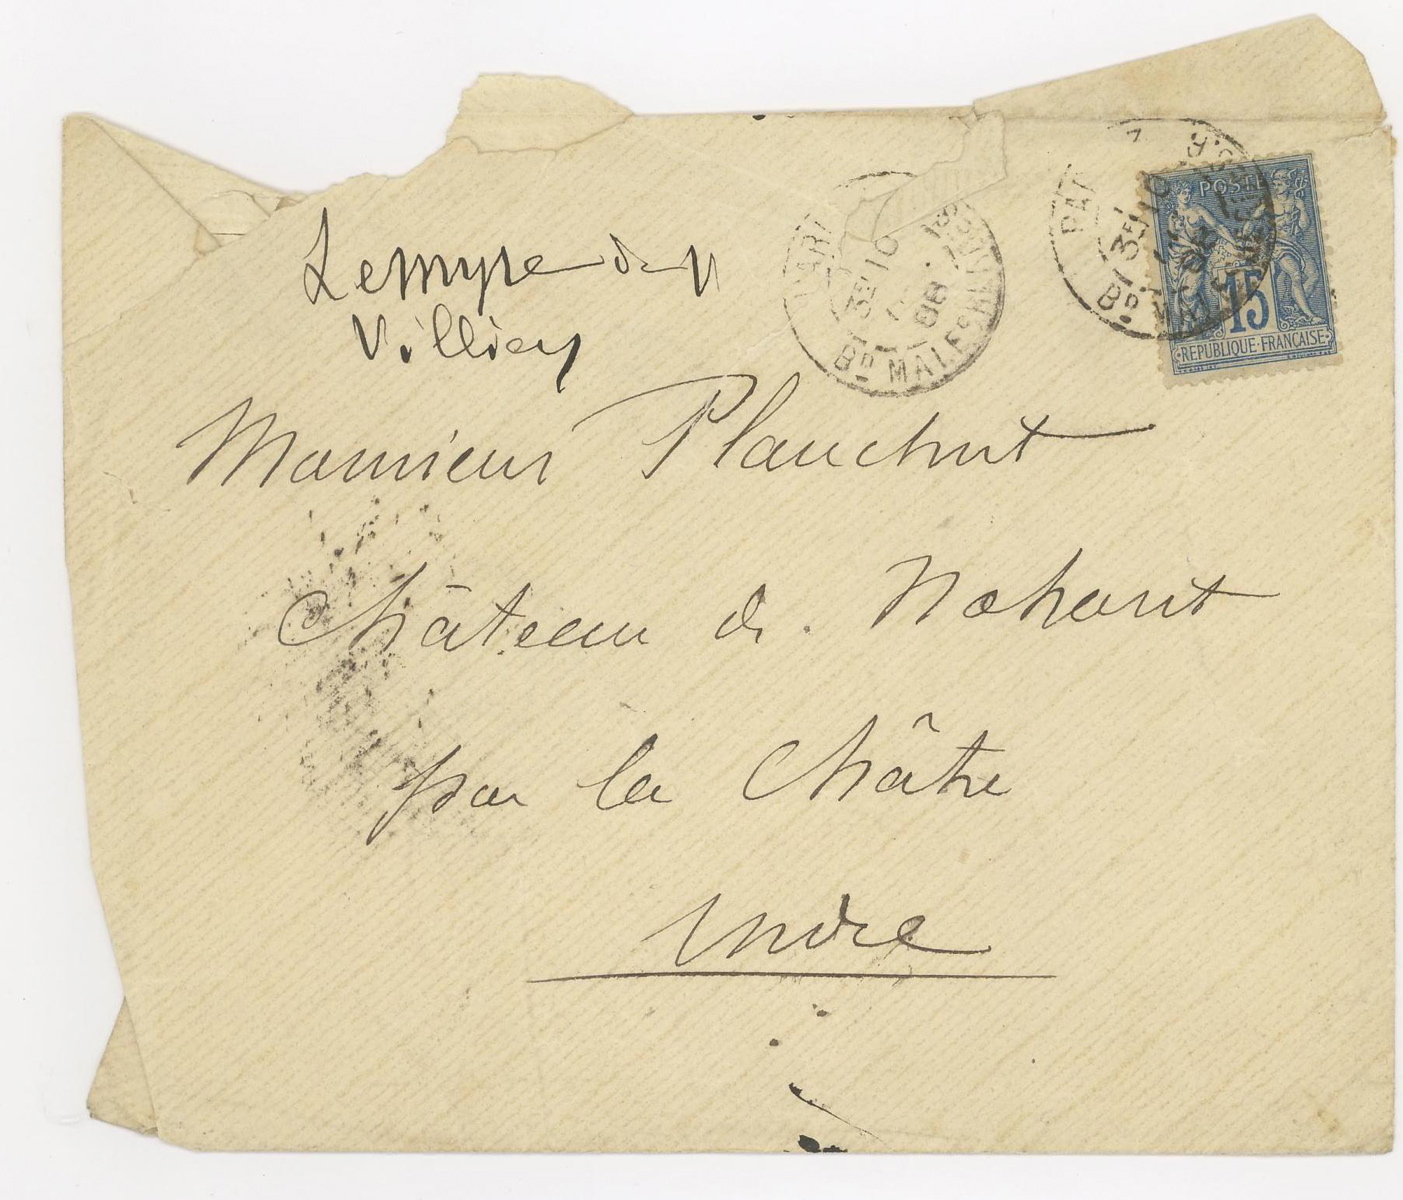 Lemyre de
Villiers
PARIS
3E 10
88
Bd MALESHERBES
PARIS
3E 10
Bd MALESHERBES
POSTE
15
REPUBLIQUE FRANÇAISE
Monsieur Plauchut
Château de Nohant
par la Châtre
Indre